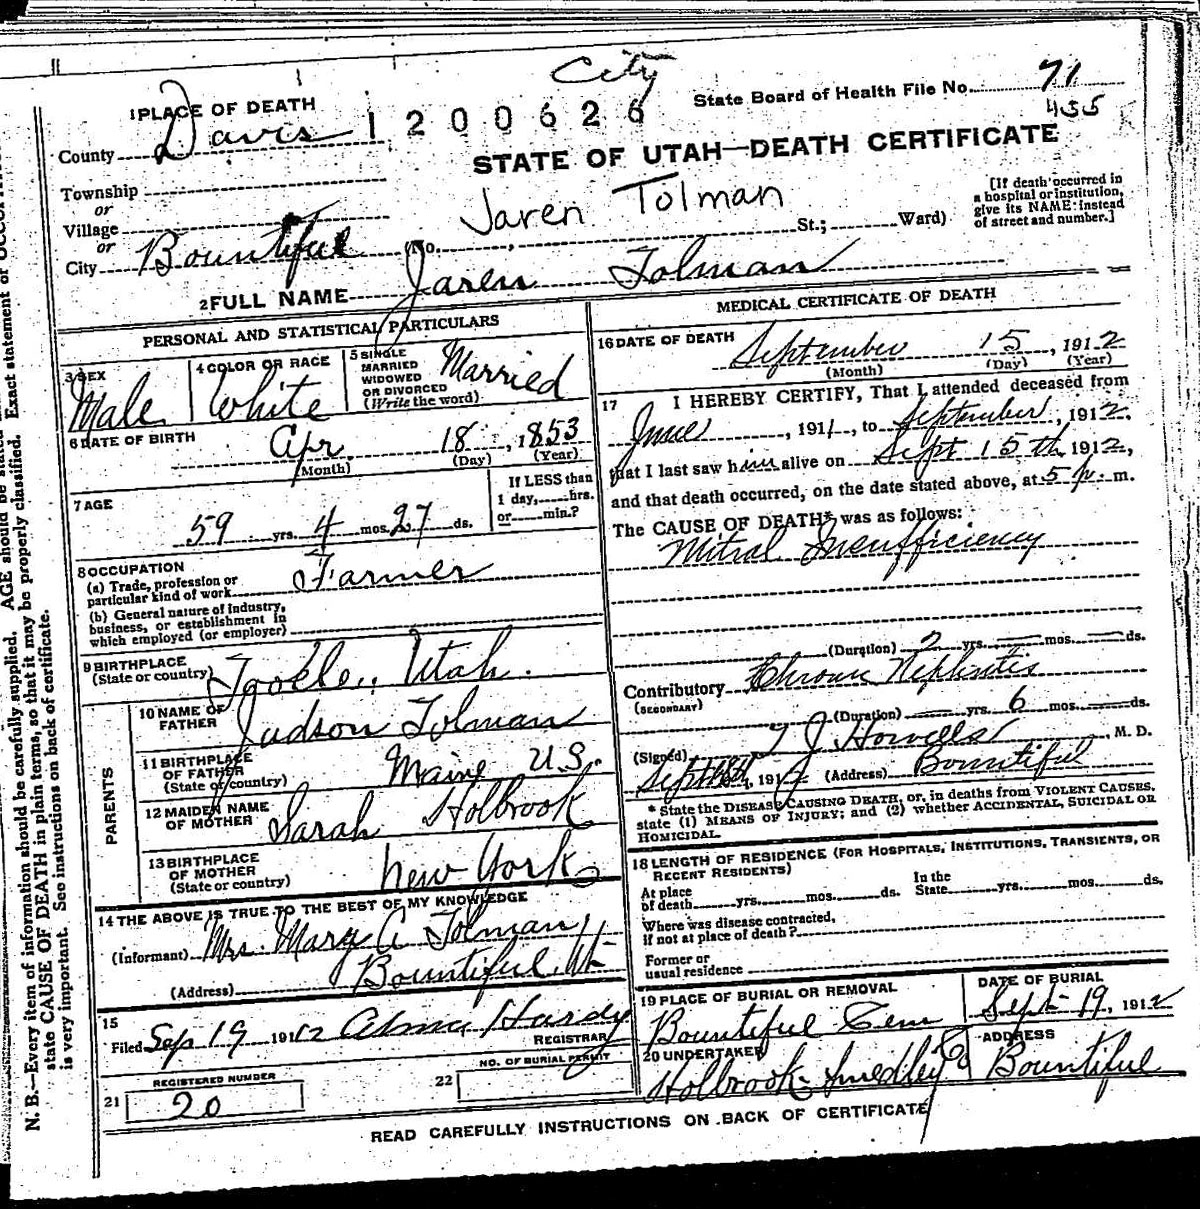 City
1 PLACE OF DEATH
State Board of Health File No. 71
County Davis 1200626
455
STATE OF UTAH—DEATH CERTIFICATE
Township
or
Village
or
City Bountiful (No. , Jaren Tolman St.; Ward)
[If death occurred in
a hospital or institution,
give its NAME instead
of street and number.]
2 FULL NAME Jaren Tolman
PERSONAL AND STATISTICAL PARTICULARS
3 SEX Male
4 COLOR OR RACE White
5 SINGLE
MARRIED
WIDOWED
OR DIVORCED
(Write the word) Married
6 DATE OF BIRTH Apr 18, 1853
(Month) (Day) (Year)
7 AGE
59 yrs. 4 mos. 27 ds.
If LESS than
1 day, hrs.
or min.?
8 OCCUPATION
(a) Trade, profession or
particular kind of work Farmer
(b) General nature of industry,
business, or establishment in
which employed (or employer)
9 BIRTHPLACE
(State or country) Tooele, Utah.
PARENTS
10 NAME OF
FATHER Judson Tolman
11 BIRTHPLACE
OF FATHER
(State or country) Maine U.S.
12 MAIDEN NAME
OF MOTHER Sarah Holbrook
13 BIRTHPLACE
OF MOTHER
(State or country) New York
14 THE ABOVE IS TRUE TO THE BEST OF MY KNOWLEDGE
(Informant) Mrs. Mary A Tolman
(Address) Bountiful, Ut
15
Filed Sep 19 1912 Alma Hardy
REGISTRAR
REGISTERED NUMBER
21 20
NO. OF BURIAL PERMIT
22
MEDICAL CERTIFICATE OF DEATH
16 DATE OF DEATH September 15, 1912
(Month) (Day) (Year)
17 I HEREBY CERTIFY, That I attended deceased from
June, 1911, to September, 1912,
that I last saw him alive on Sept 15th, 1912,
and that death occurred, on the date stated above, at 5 p. m.
The CAUSE OF DEATH* was as follows:
Mitral Insufficiency
(Duration) 2 yrs. — mos. — ds.
Contributory Chronic Nephritis
(SECONDARY)
(Duration) — yrs. 6 mos. — ds.
(Signed) J Howells, M. D.
Sept 18th, 1912 (Address) Bountiful
* State the DISEASE CAUSING DEATH, or, in deaths from VIOLENT CAUSES,
state (1) MEANS OF INJURY; and (2) whether ACCIDENTAL, SUICIDAL OR
HOMICIDAL.
18 LENGTH OF RESIDENCE (FOR HOSPITALS, INSTITUTIONS, TRANSIENTS, OR
RECENT RESIDENTS)
At place
of death yrs. mos. ds.
In the
State yrs. mos. ds.
Where was disease contracted,
if not at place of death?
Former or
usual residence
19 PLACE OF BURIAL OR REMOVAL
Bountiful Cem
DATE OF BURIAL
Sept 19, 1912
20 UNDERTAKER
Holbrook-Smedley Co
ADDRESS
Bountiful
READ CAREFULLY INSTRUCTIONS ON BACK OF CERTIFICATE
N. B.—Every item of information should be carefully supplied. AGE should be stated
Exact statement of
state CAUSE OF DEATH in plain terms, so that it may be properly classified.
is very important. See instructions on back of certificate.